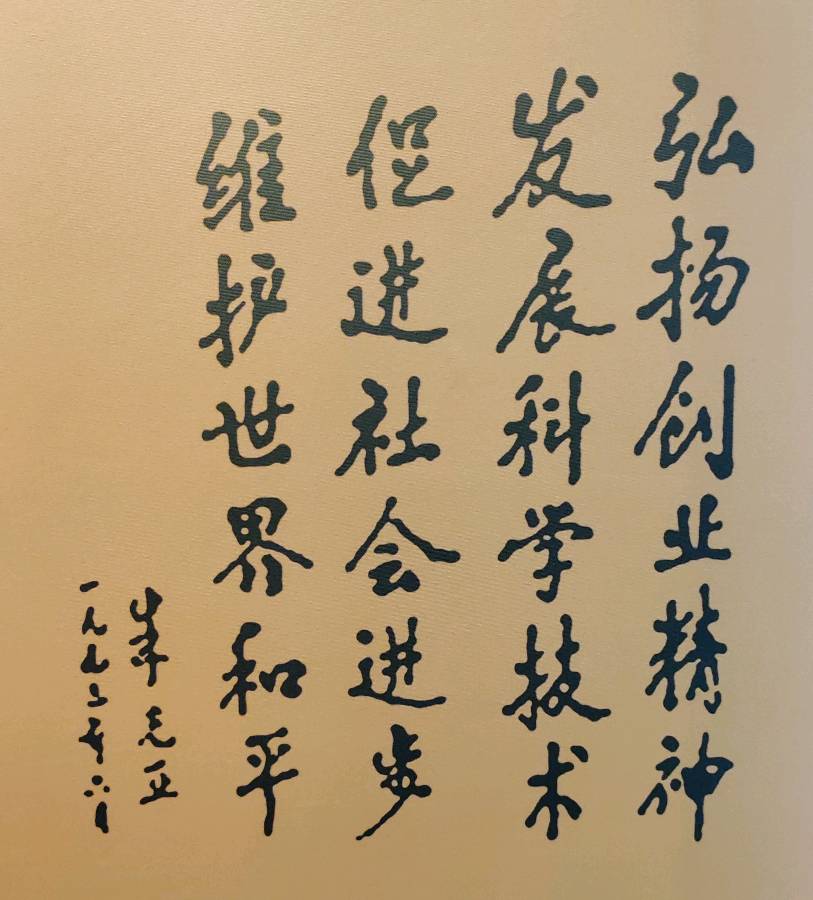 弘扬创业精神
发展科学技术
促进社会进步
维护世界和平
一九九二年六月